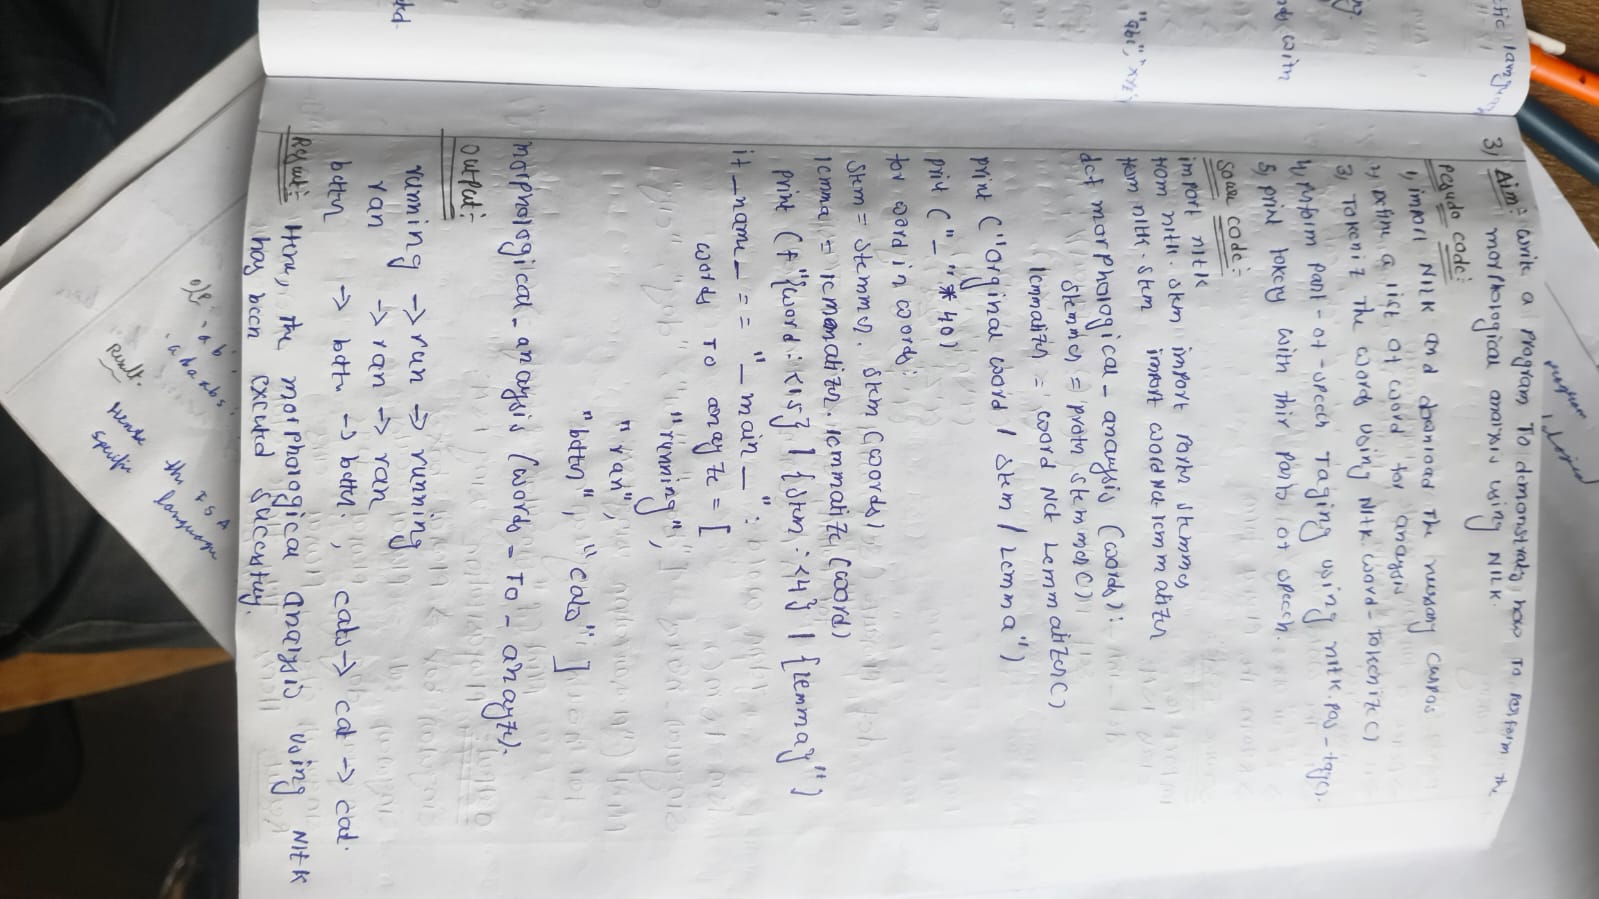 program
3) Aim:- Write a program To demonstrate how To perform the
morphological analysis using NLTK.
Pesudo code:-
1, import NLTK and download The necessary Curpos
2, Define a list of word for anaysis
3, Tokeniz The words using Nltk.word-Tokenize()
4, Perform Part-of-speech Taging using nltk.pos-tag().
5, print tokery with thir Parts of speech.
Soure code:-
import nltk
from nltk.stem import Porter stemmer
from nltk.stem import word Net lemmatizer
def morphological_anaysis (words):
stemmer = proter stemmer()
lemmatizer = word Net Lemmatizer()
print ("Orginal word | Stem | Lemma")
print ("_" * 40)
for word in words:
Stem = Stemmer. Stem (words)
lemma = lemmatizer. lemmatize (word)
print (f "{word:<15} | {Stem:<4} | {lemma}")
if _name_ == "_main_":
words To anayze = [
"running",
"ran",
"better", "cats" ]
morphological_anaysis (words_To_anayze).
Output:-
running -> run -> running
ran -> ran -> ran
better -> bette -> better. , cats -> cat -> cat.
Result:- Here, the morphological analysis using Nltk
has been excuted Successfuy.
O/P.
'ab'
Result.
Hence the FSA
specific language